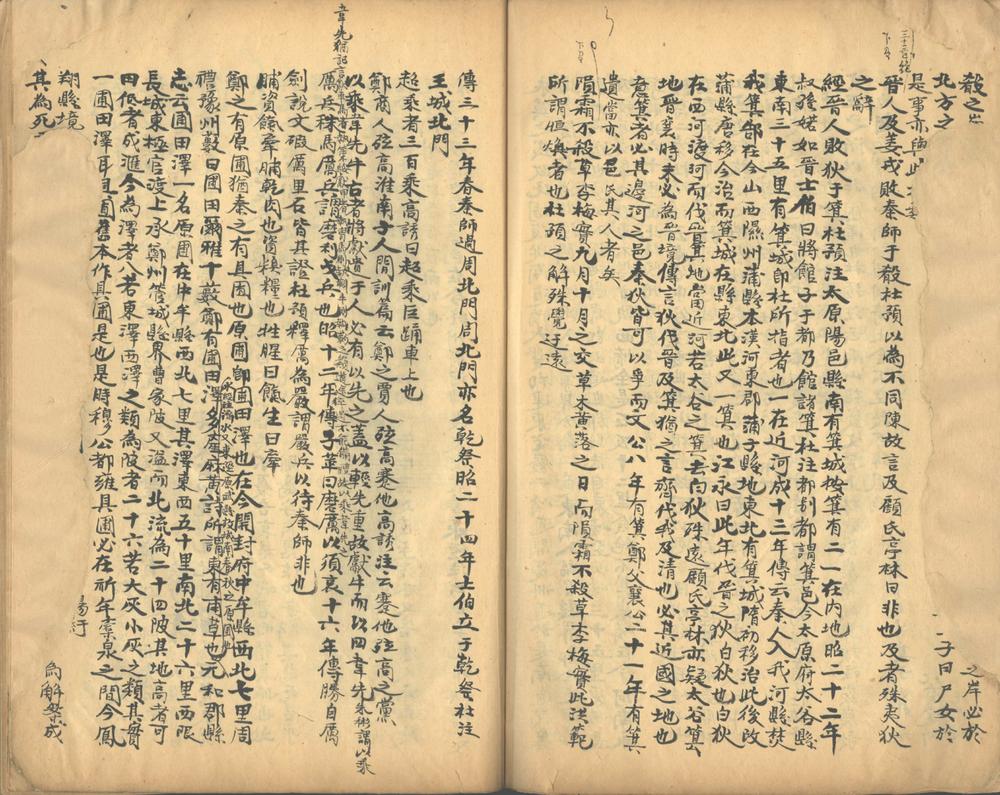 殽之
北方之
是事亦與此
晉人及姜戎敗秦師于殽杜預以為不同陳故言及顧氏亭林曰非也及者殊夷狄
之辭
經晉人敗狄于箕杜預注太原陽邑縣南有箕城按箕有二一在內地昭二十二年
叔孫婼如晉士伯曰將館子于都乃館諸箕杜注都別都謂箕邑今太原府太谷縣
東南三十五里有箕城即杜所指者也一在近河成十三年傳云秦人入我河縣焚
我箕郜在今山西隰州蒲縣本漢河東郡蒲子縣地東北有箕城隋初移治此後改
蒲縣唐移今治而箕城在縣東北此又一箕也江永曰此年代晉之狄白狄也白狄
在西河渡河而伐箕地當近河若太谷之箕去白狄殊遠顧氏亭林亦疑太谷箕
地晉襄時未必為晉境傳言狄伐晉及箕猶之言齊伐我及清也必其近國之地也
意箕者必其邊河之邑秦狄皆可以爭而文公八年有箕鄭父襄公二十一年有箕
遺當亦以邑氏其人者矣
隕霜不殺草李梅實九月十月之交草木黃落之日而隕霜不殺草李梅實此洪範
所謂恒燠者也杜預之解殊覺迂遠
之岸必於
子曰尸女於
傳三十三年春秦師過周北門周北門亦名乾祭昭二十四年士伯立于乾祭杜注
王城北門
超乘者三百乘高誘曰超乘巨踊車上也
鄭商人弦高淮南子人間訓篇云鄭之賈人弦高蹇他高誘注云蹇他弦高之黨
以乘韋先牛古者將獻遺于人必有以先之蓋以輕先重故獻牛而以四韋先
厲兵秣馬厲兵謂磨利戎兵也昭十二年傳子革曰磨厲以須哀十六年傳勝自厲
劍說文礪厲里石皆其證杜預釋厲為嚴謂嚴兵以待秦師非也
脯資餼牽脯乾肉也資糗糧也牲腥曰餼生曰牽
鄭之有原圃猶秦之有具囿也原圃即圃田澤也在今開封府中牟縣西北七里周
禮豫州藪曰圃田爾雅十藪鄭有圃田澤多產麻黃詩所謂東有甫草也元和郡縣
志云圃田澤一名原圃在中牟縣西北七里其澤東西五十里南北二十六里西限
長城東極官渡上承鄭州管城縣界曹家陂又溢而北流為二十四陂其地高者可
田低者成匯今為澤者八若東澤西澤之類為陂者二十六若大灰小灰之類其實
一圃田澤耳具囿舊本作具圃是也是時穆公都雍具圃必在祈年橐泉之間今鳳
翔縣境
其為死
為解祭成